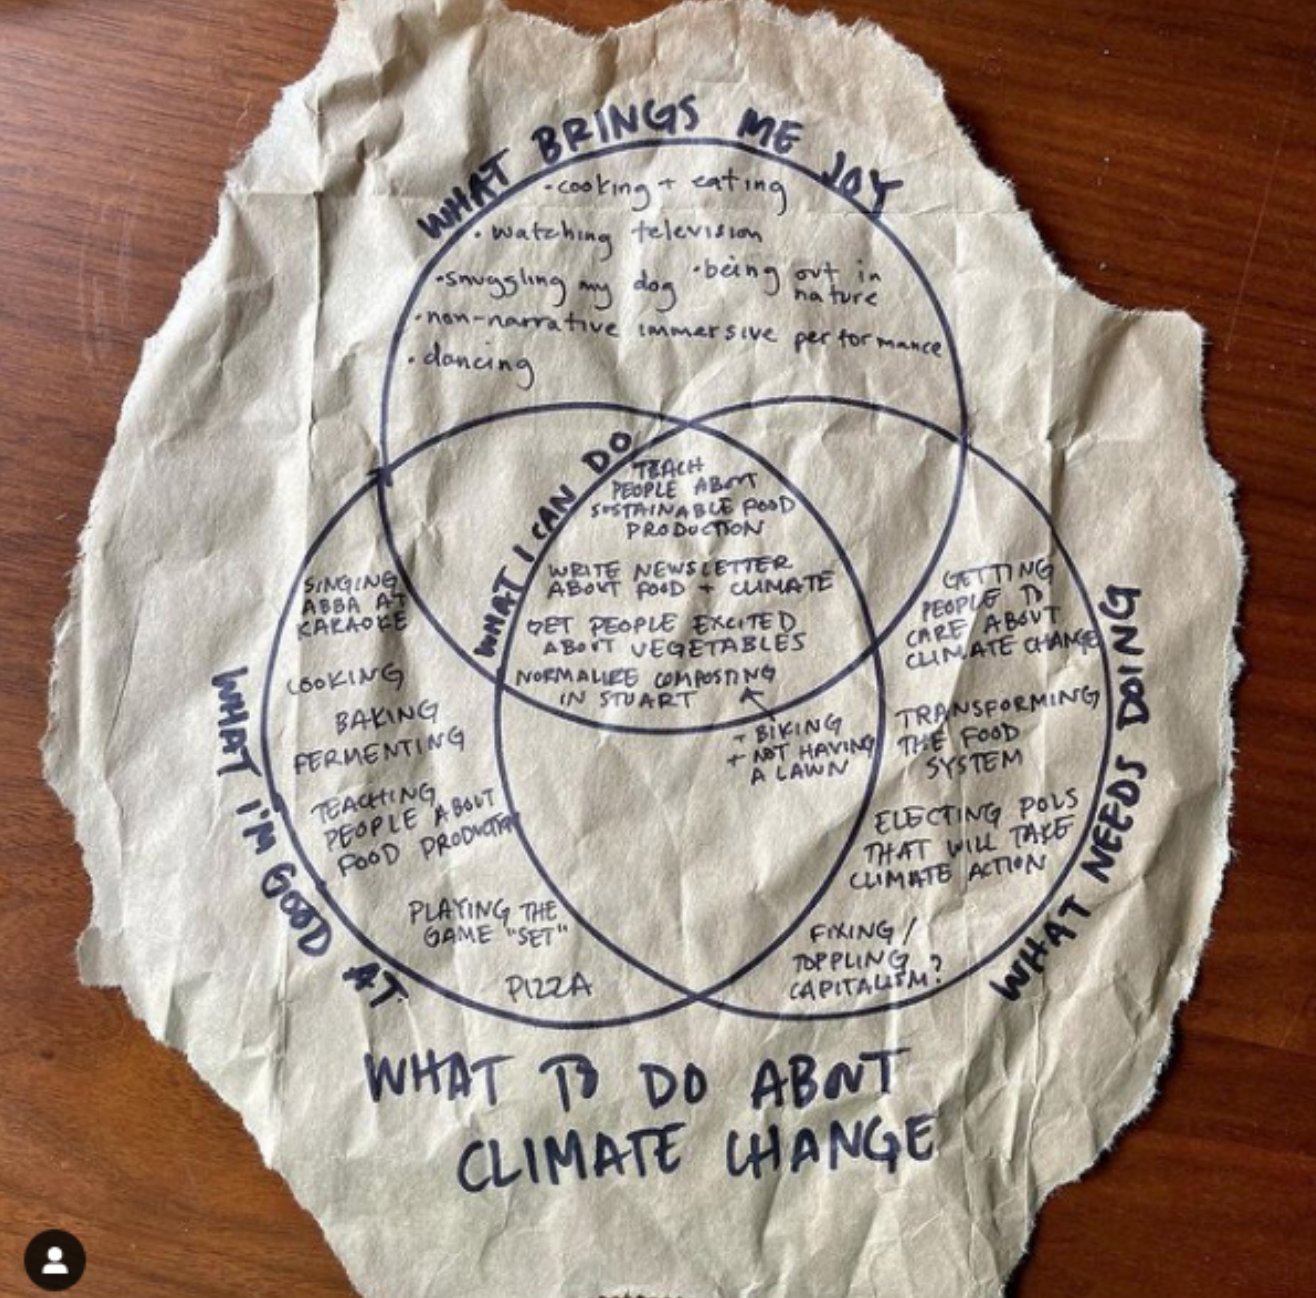 WHAT BRINGS ME JOY
• cooking + eating
• watching television
• snuggling my dog
• being out in
nature
• non-narrative immersive performance
• dancing
WHAT I CAN DO
TEACH
PEOPLE ABOUT
SUSTAINABLE FOOD
PRODUCTION
WRITE NEWSLETTER
ABOUT FOOD + CLIMATE
GET PEOPLE EXCITED
ABOUT VEGETABLES
NORMALIZE COMPOSTING
IN STUART
+ BIKING
+ NOT HAVING
A LAWN
WHAT I'M GOOD AT
SINGING
ABBA AT
KARAOKE
COOKING
BAKING
FERMENTING
TEACHING
PEOPLE ABOUT
FOOD PRODUCTION
PLAYING THE
GAME "SET"
PIZZA
WHAT NEEDS DOING
GETTING
PEOPLE TO
CARE ABOUT
CLIMATE CHANGE
TRANSFORMING
THE FOOD
SYSTEM
ELECTING POLS
THAT WILL TAKE
CLIMATE ACTION
FIXING /
TOPPLING
CAPITALISM?
WHAT TO DO ABOUT
CLIMATE CHANGE